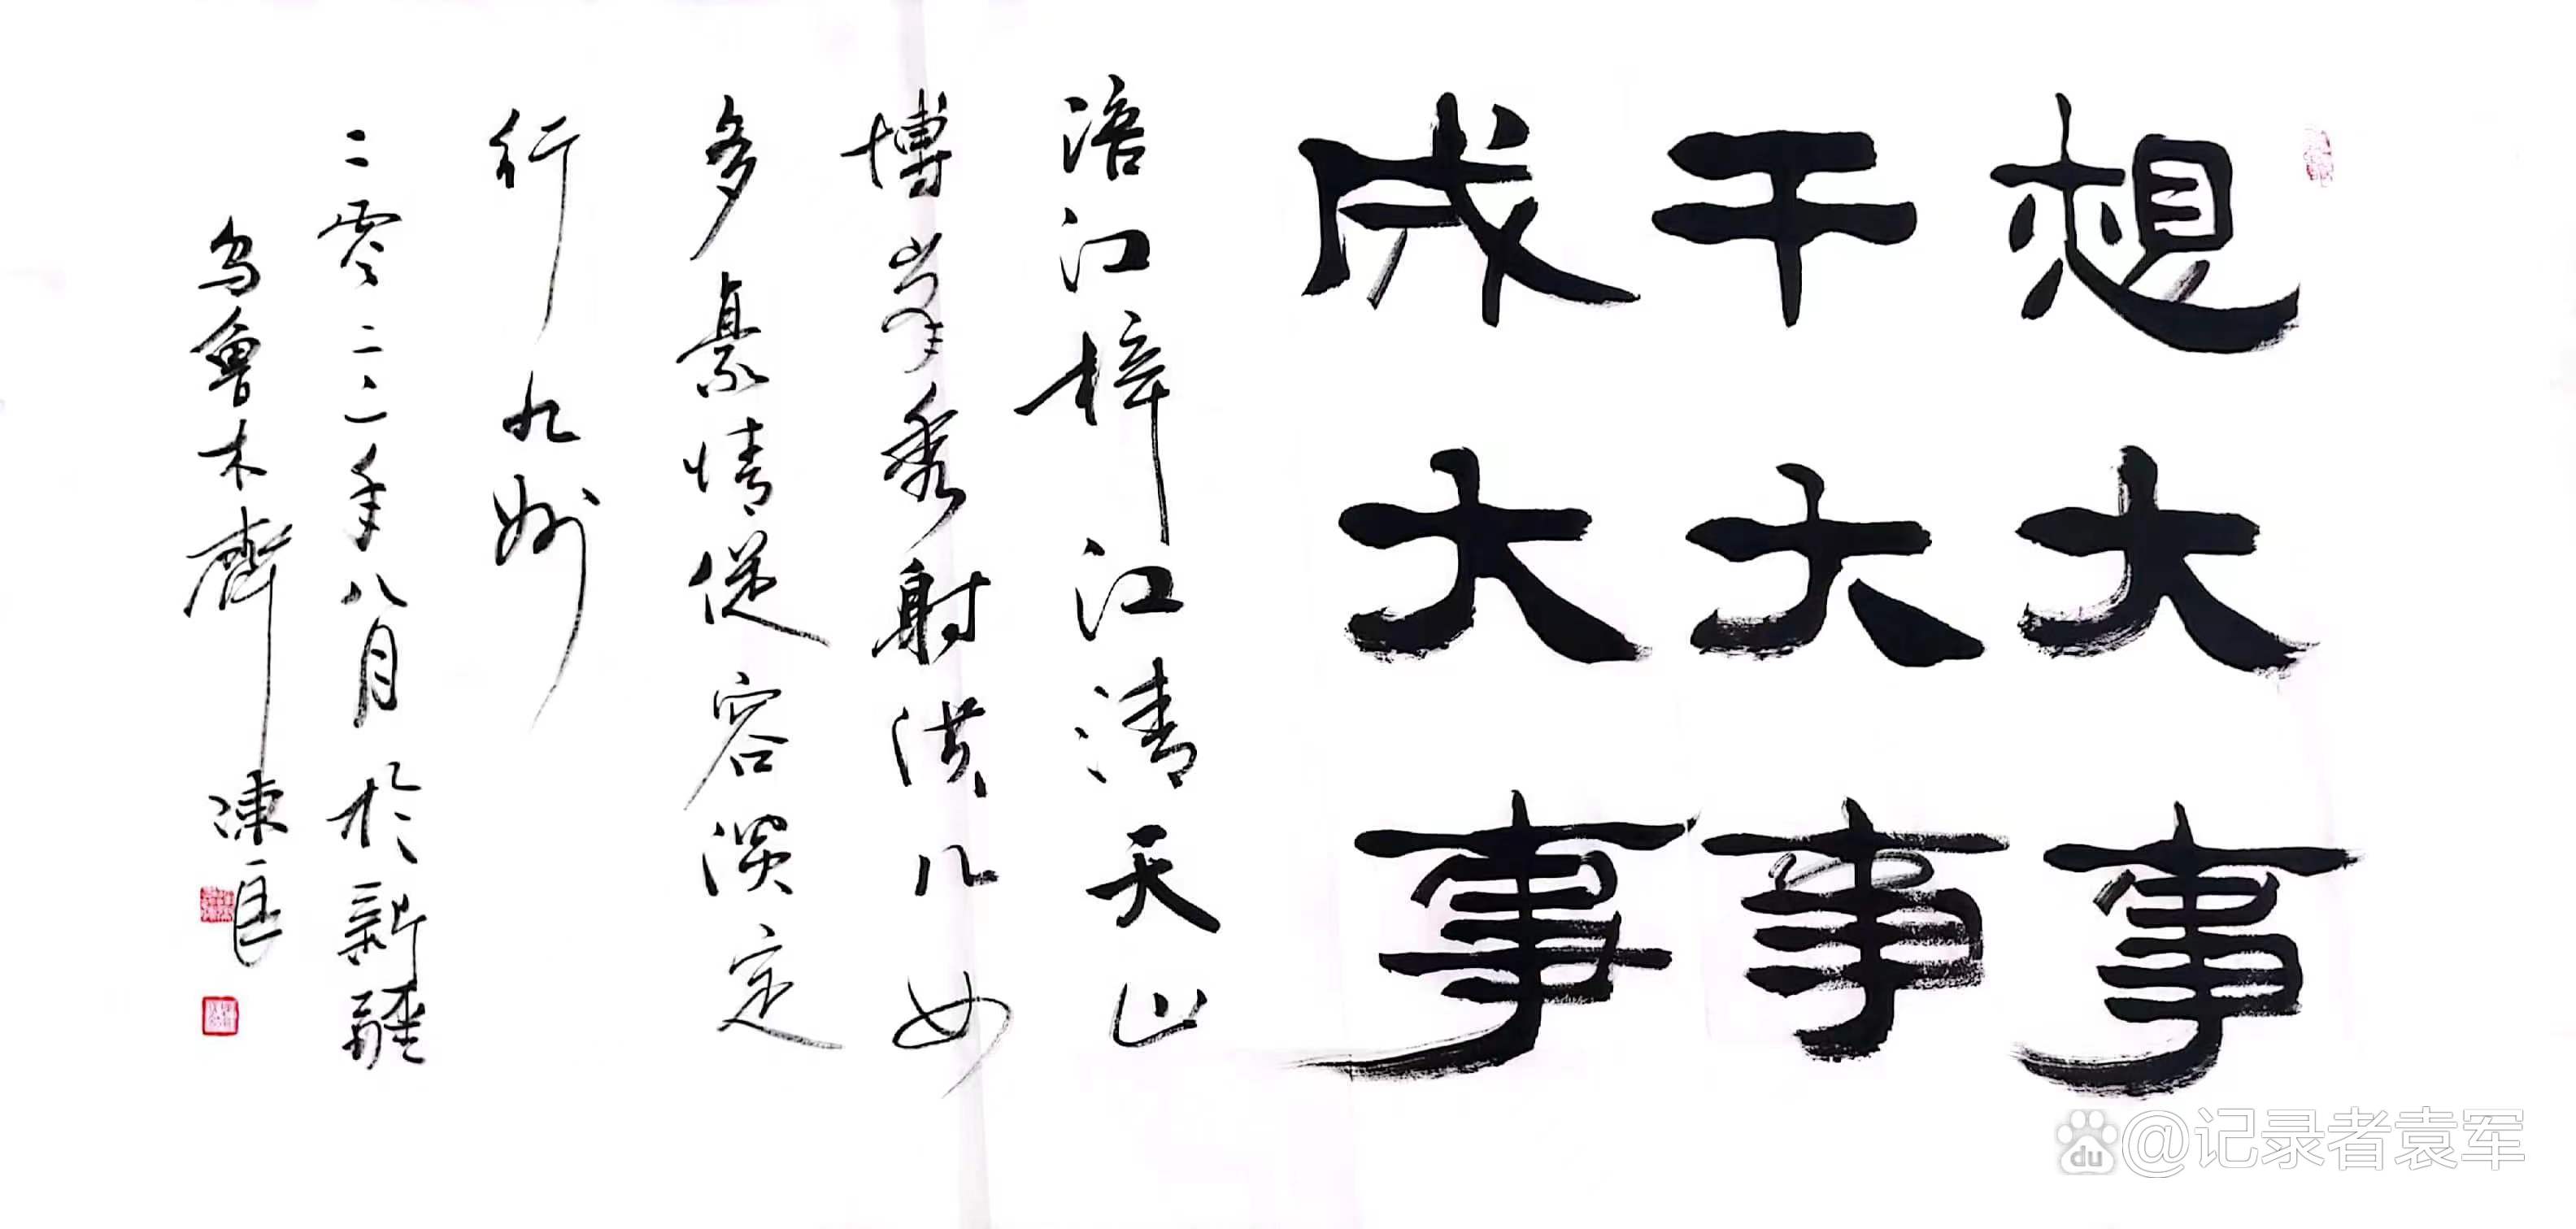 想大事
干大事
成大事
涪江梓江清天山
博峯秀射洪儿女
多豪情從容淡定
行九州
二零二二年八月於新疆
乌鲁木齊 陳良
du @记录者袁军